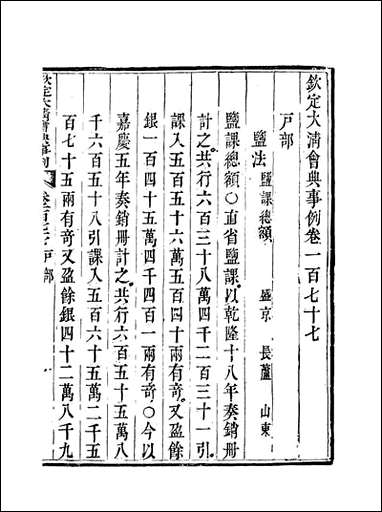 欽定大清會典事例卷一百七十七
戶部
鹽法 鹽課總額 盛京 長蘆 山東
鹽課總額○直省鹽課以乾隆十八年奏銷冊
計之共行六百三十八萬四千二百三十一引
課入五百五十六萬五百四十兩有奇又盈餘
銀一百四十五萬四千四百一兩有奇○今以
嘉慶五年奏銷冊計之共行六百五十五萬八
千六百五十八引課入五百六十五萬二千五
百七十五兩有奇又盈餘銀四十二萬八千九
欽定大清會典事例 卷一百七十七 戶部